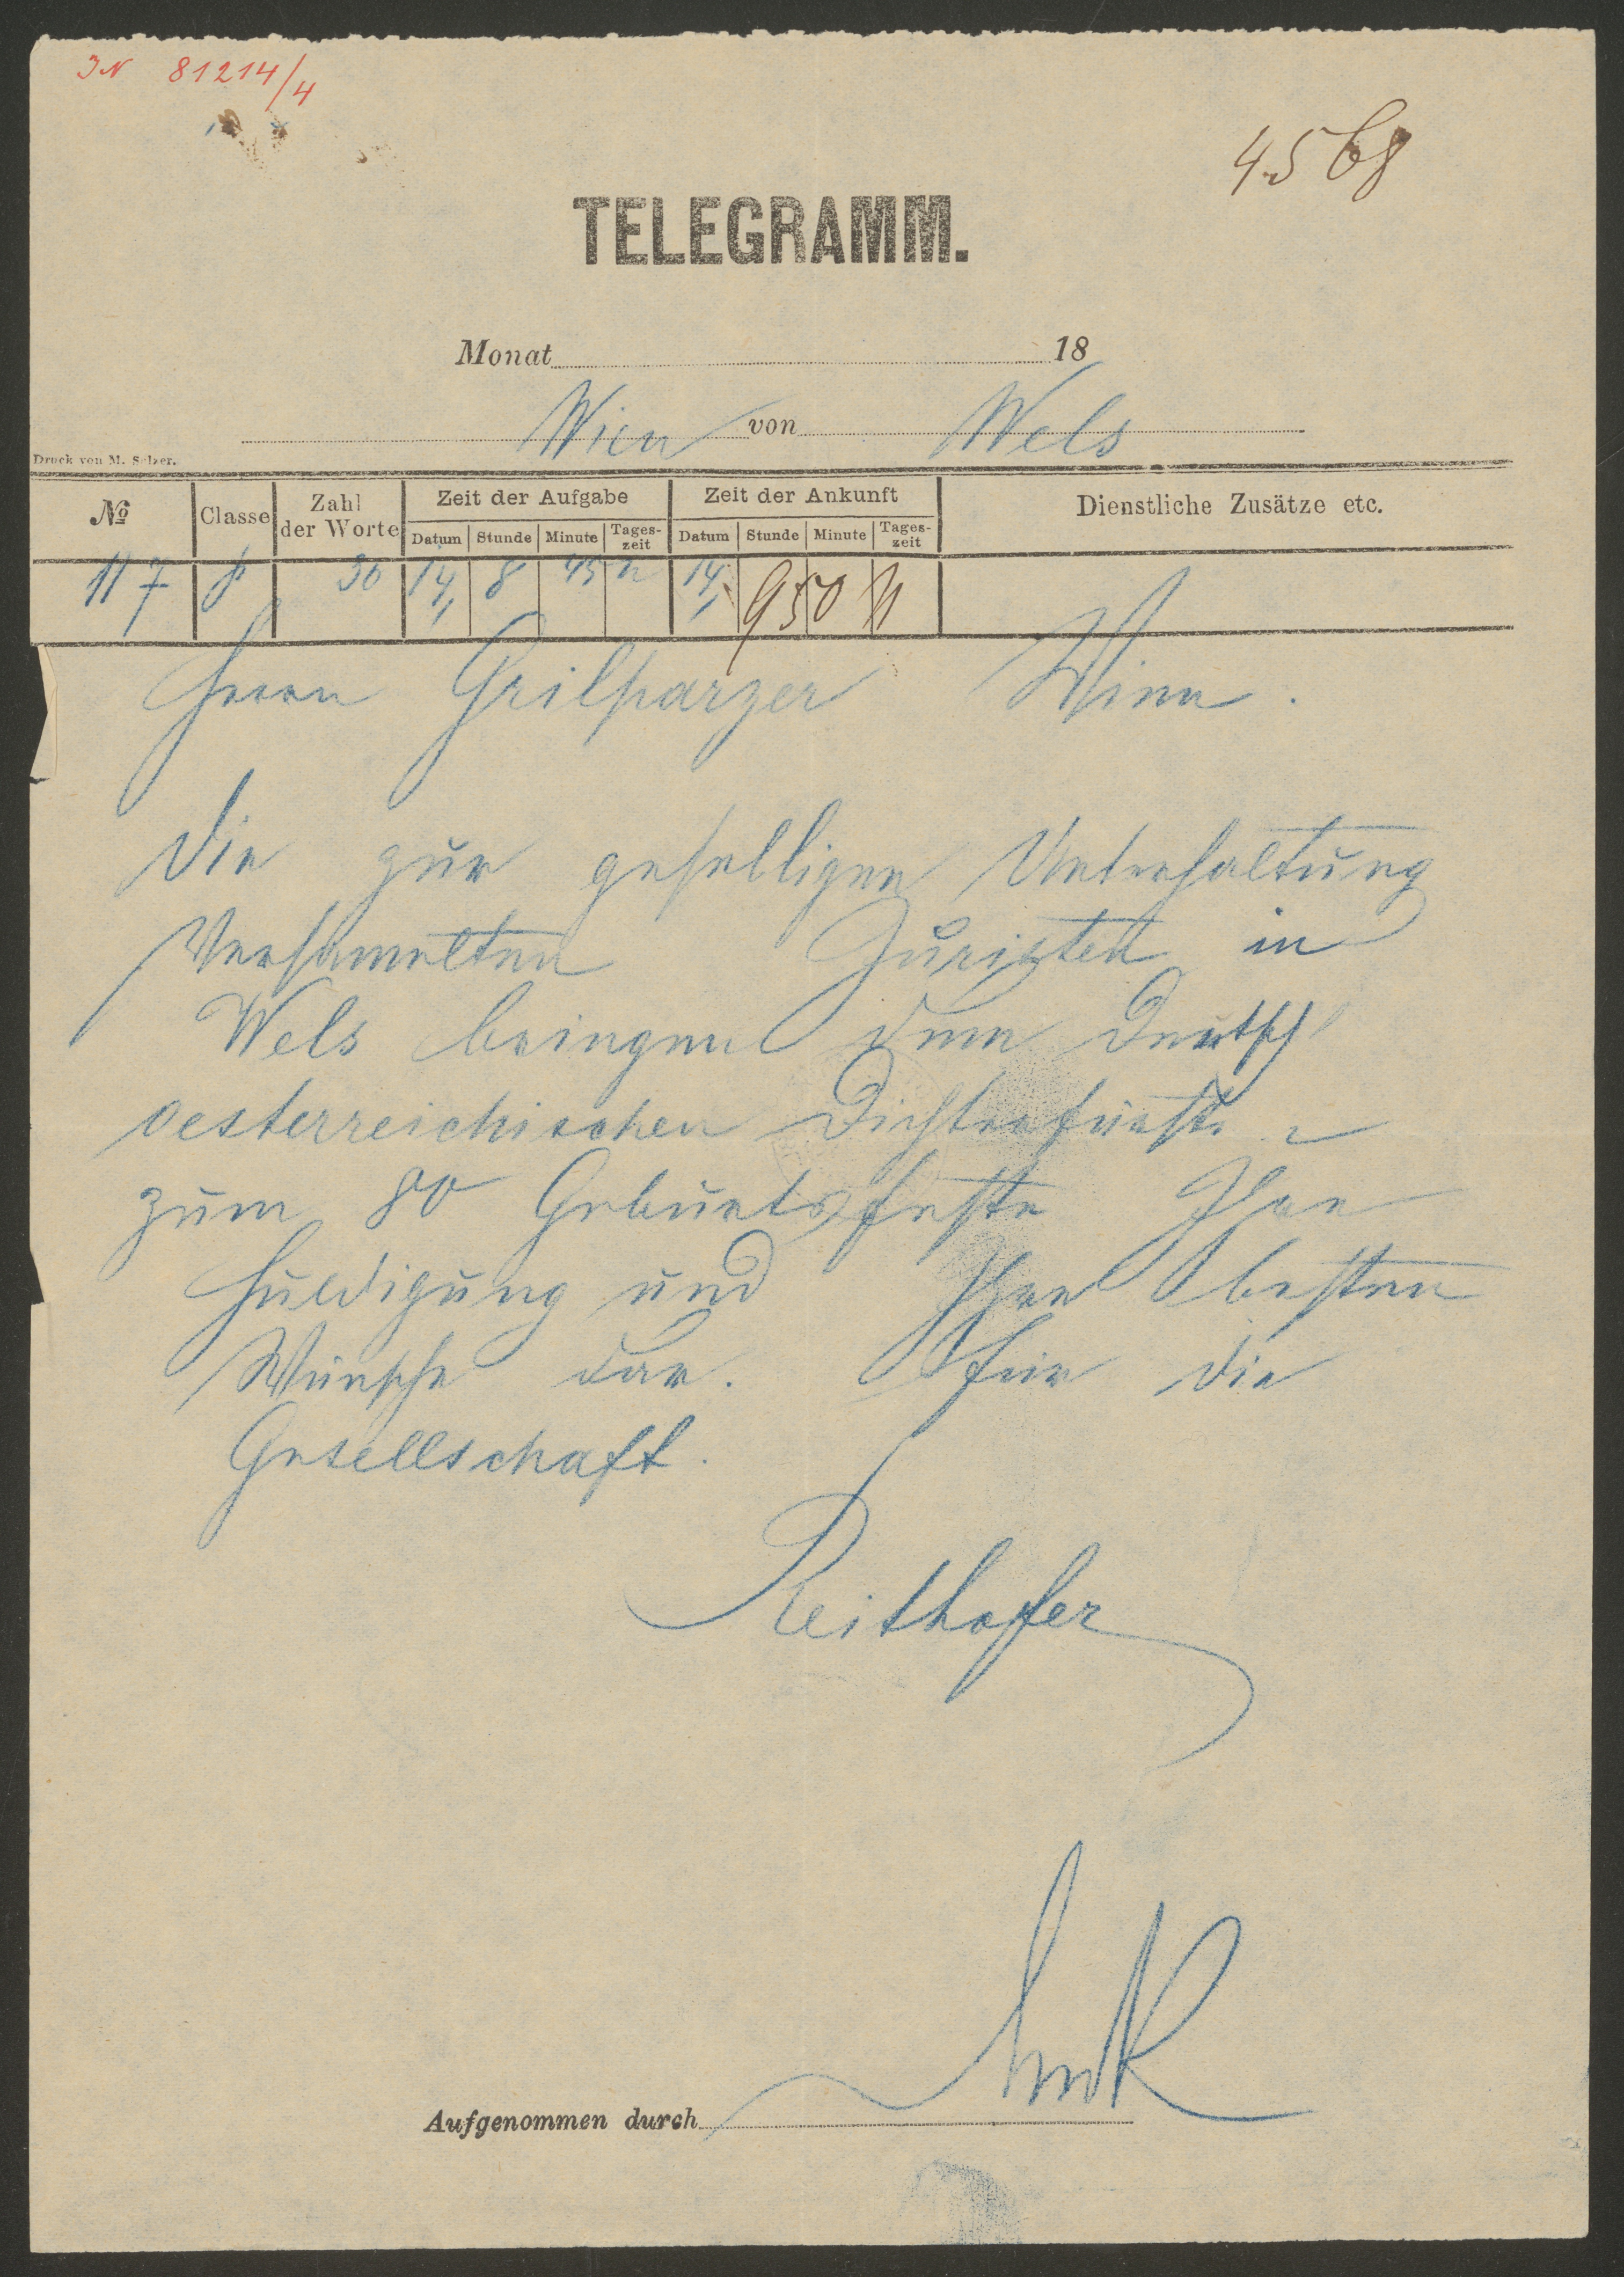 IN 81214/4
4568
TELEGRAMM.
Monat 18
Wien von Wels
Druck von M. Salzer.
No Classe Zahl der Worte Zeit der Aufgabe Zeit der Ankunft Dienstliche Zusätze etc.
Datum Stunde Minute Tages-zeit Datum Stunde Minute Tages-zeit
117 p 36 14/1 8 45 n 14/1 9 50 N
Herrn Grilparzer Wien.
Die zur geselligen Unterhaltung
Versamelten Juristen in
Wels bringen dem Deutsch
oesterreichischen Dichterfürste
zum 80 Geburtsfeste Ihre
Huldigung und Ihre besten
Wünsche dar. Für die
Gesellschaft.
Reithofer
Aufgenommen durch